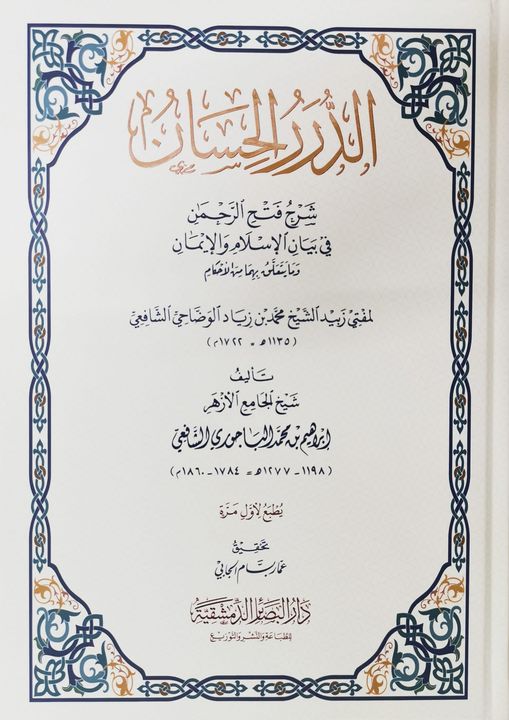 الدُّرَرُ الحِسَانُ
شَرْحُ فَتْحِ الرَّحْمٰنِ
فِي بَيَانِ الإِسْلَامِ وَالإِيْمَانِ
وَمَا يَتَعَلَّقُ بِهِمَا مِنَ الأَحْكَامِ
لمفتي زبيد الشيخ محمد بن زياد الوضاحي الشافعي
(١١٣٥ه = ١٧٢٢م)
تأليف
شيخ الجامع الأزهر
إبراهيم بن محمد الباجوري الشافعي
(١١٩٨-١٢٧٧ه = ١٧٨٤-١٨٦٠م)
يُطْبَعُ لِأَوَّلِ مَرَّة
تحقيق
عمار بسام الجابي
دار البصائر الدمشقية
للطباعة والنشر والتوزيع